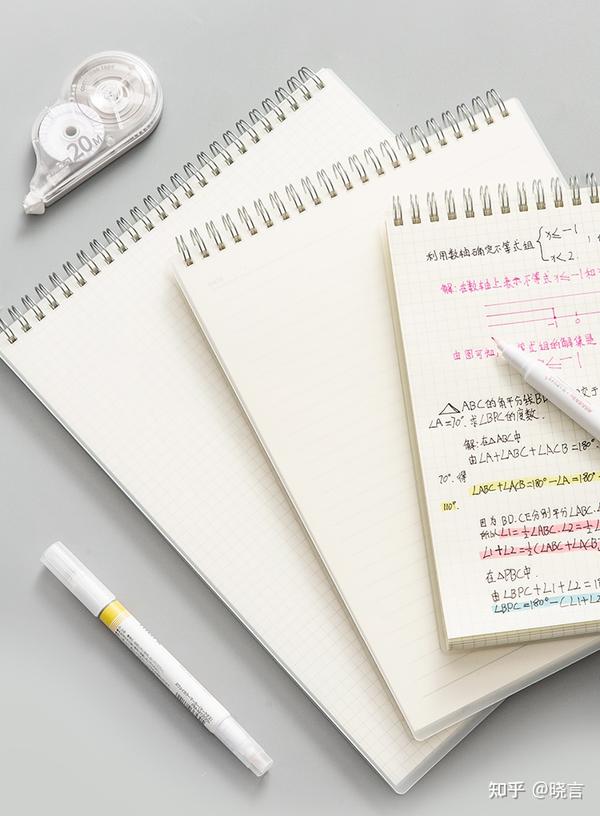 20M
利用数轴确定不等式组{x≤-1
x<2.
解:在数轴上表示不等式x≤-1和
-1 0
由图可知,不等式组的解集是
x≤-1
△ABC的角平分线BD
∠A=70°.求∠BPC的度数.
解:在△ABC中
由∠A+∠ABC+∠ACB=180°
70°.得
∠ABC+∠ACB=180°-∠A=180°-
110°
因为BD.CE分别平分∠ABC.
所以∠1=½∠ABC.∠2=½∠
∠1+∠2=½(∠ABC+∠ACB)
在△PBC中.
由∠BPC+∠1+∠2=1
∠BPC=180°-(∠1+∠2
知乎 @晓言